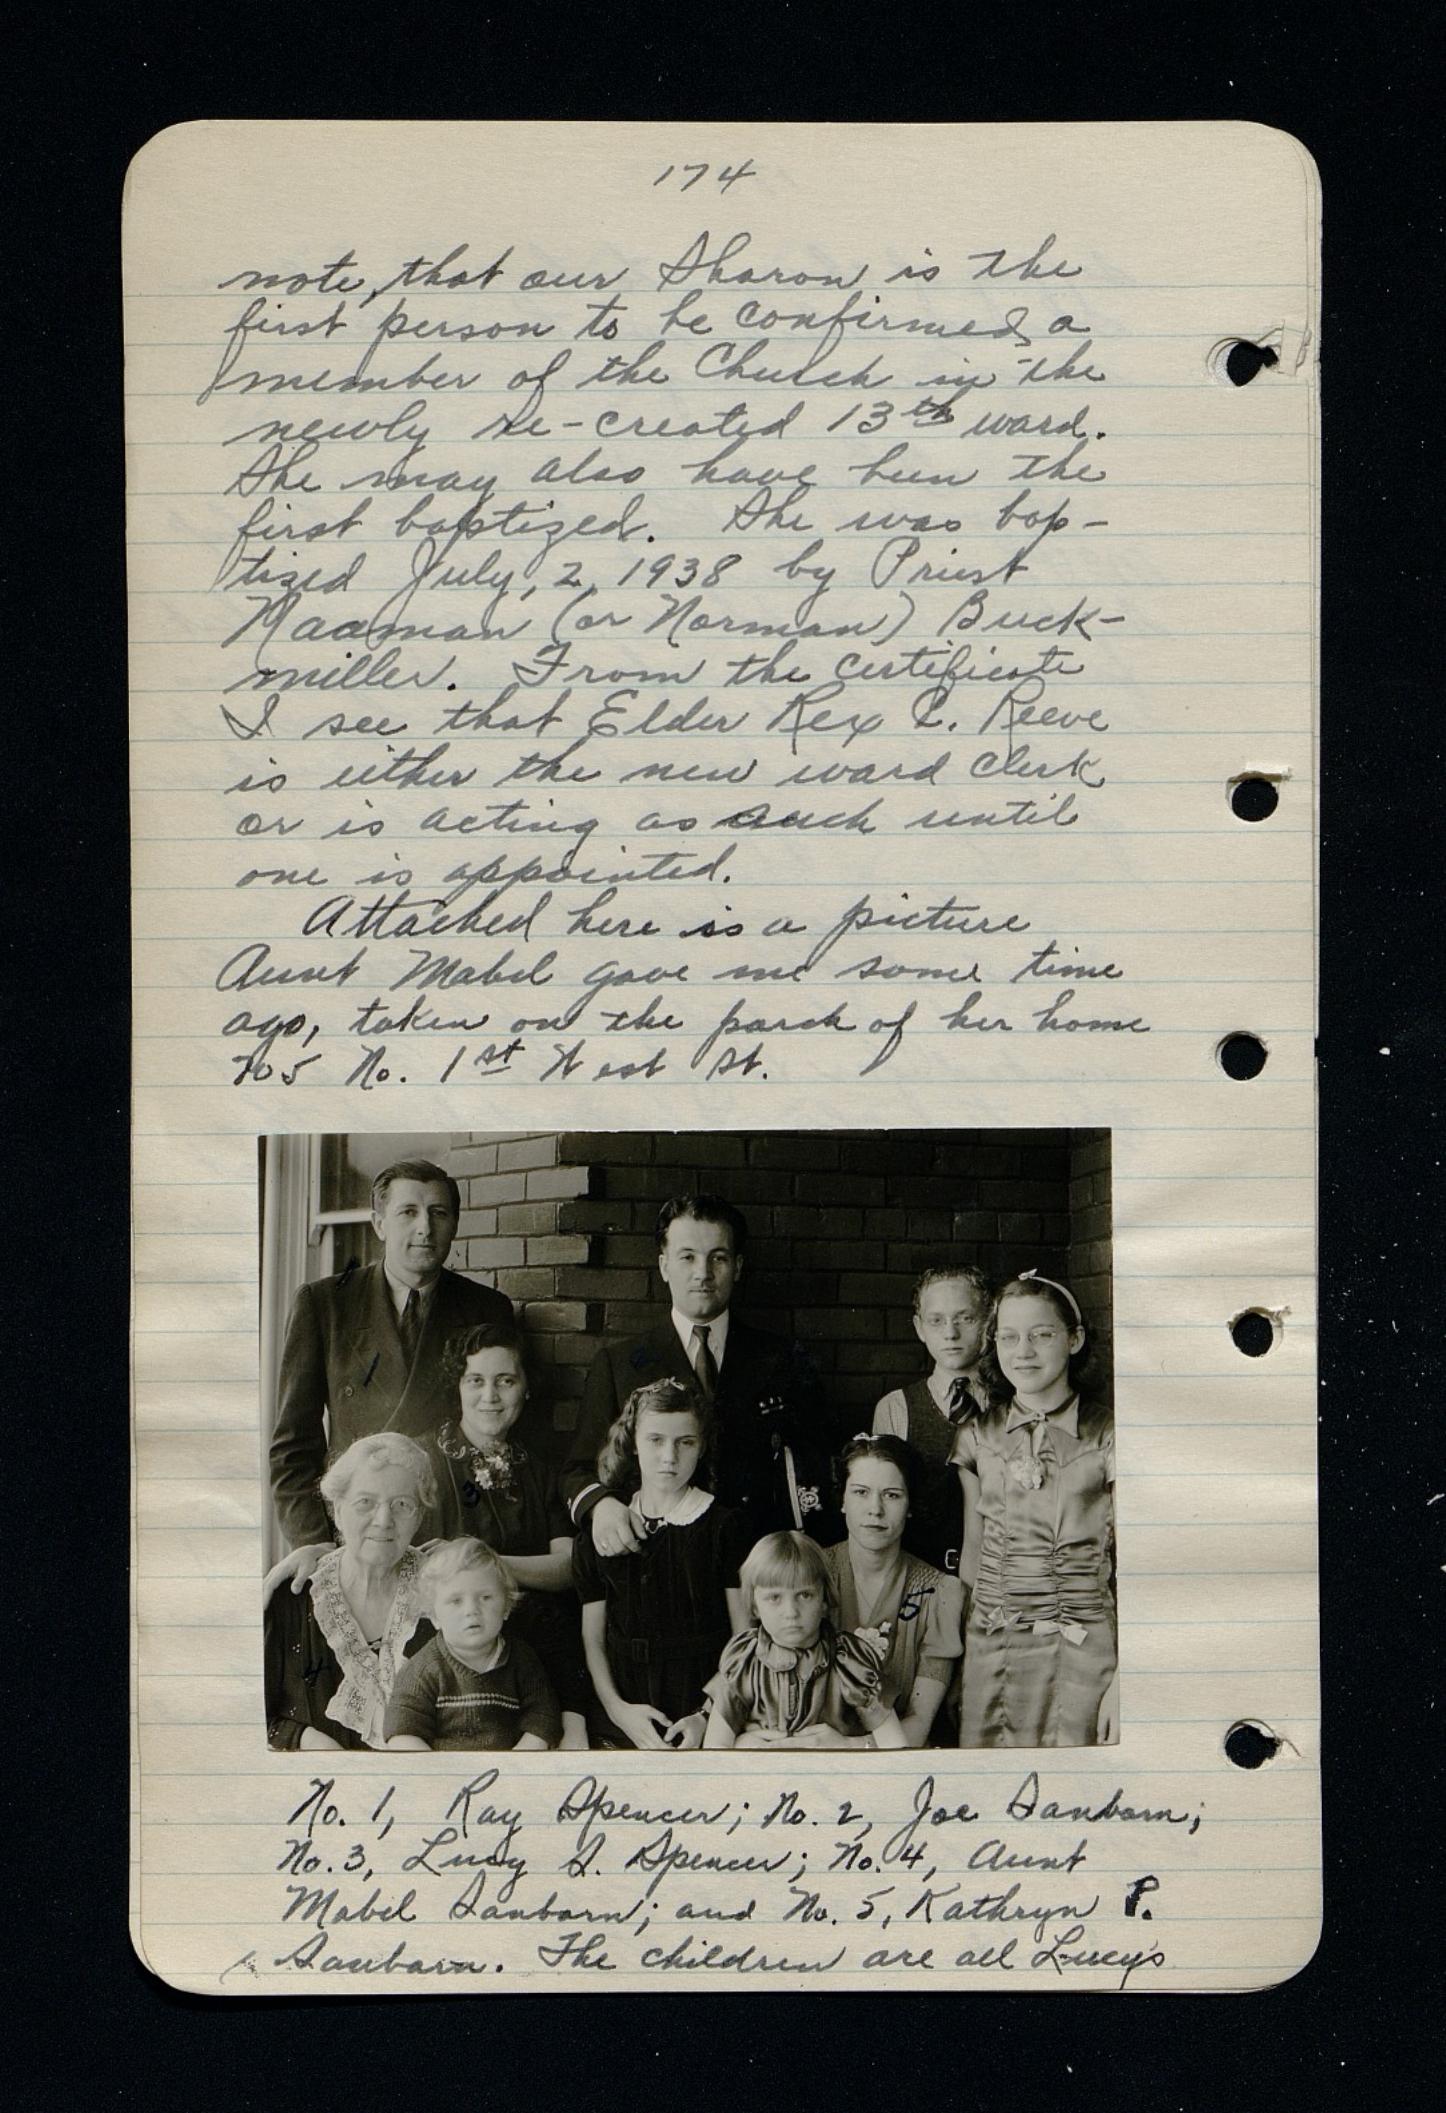 174
note, that our Sharon is the
first person to be confirmed a
member of the Church in the
newly re-created 13th ward.
She may also have been the
first baptized. She was bap-
tized July, 2, 1938 by Priest
Naaman (or Norman) Buck-
miller. From the certificate
I see that Elder Rex C. Reeve
is either the new ward clerk
or is acting as such until
one is appointed.
Attached here is a picture
Aunt Mabel gave me some time
ago, taken on the porch of her home
705 No. 1st West St.
1
3
4
5
No. 1, Ray Spencer; No. 2, Joe Sanborn;
No. 3, Lucy S. Spencer; No. 4, Aunt
Mabel Sanborn; and No. 5, Kathryn P.
Sanborn. The children are all Lucy's